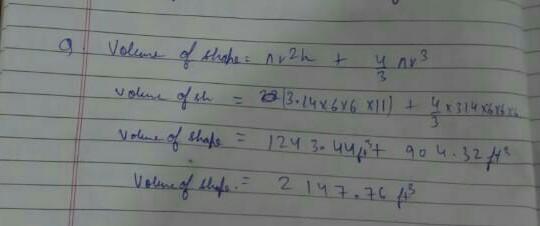 9. Volume of shape = πr²h + 4/3 πr³
Volume of sh = (3.14x6x6 x11) + 4/3 x314x6x6x6
Volume of shape = 1243.44ft³+ 904.32 ft³
Volume of shape. = 2147.76 ft³